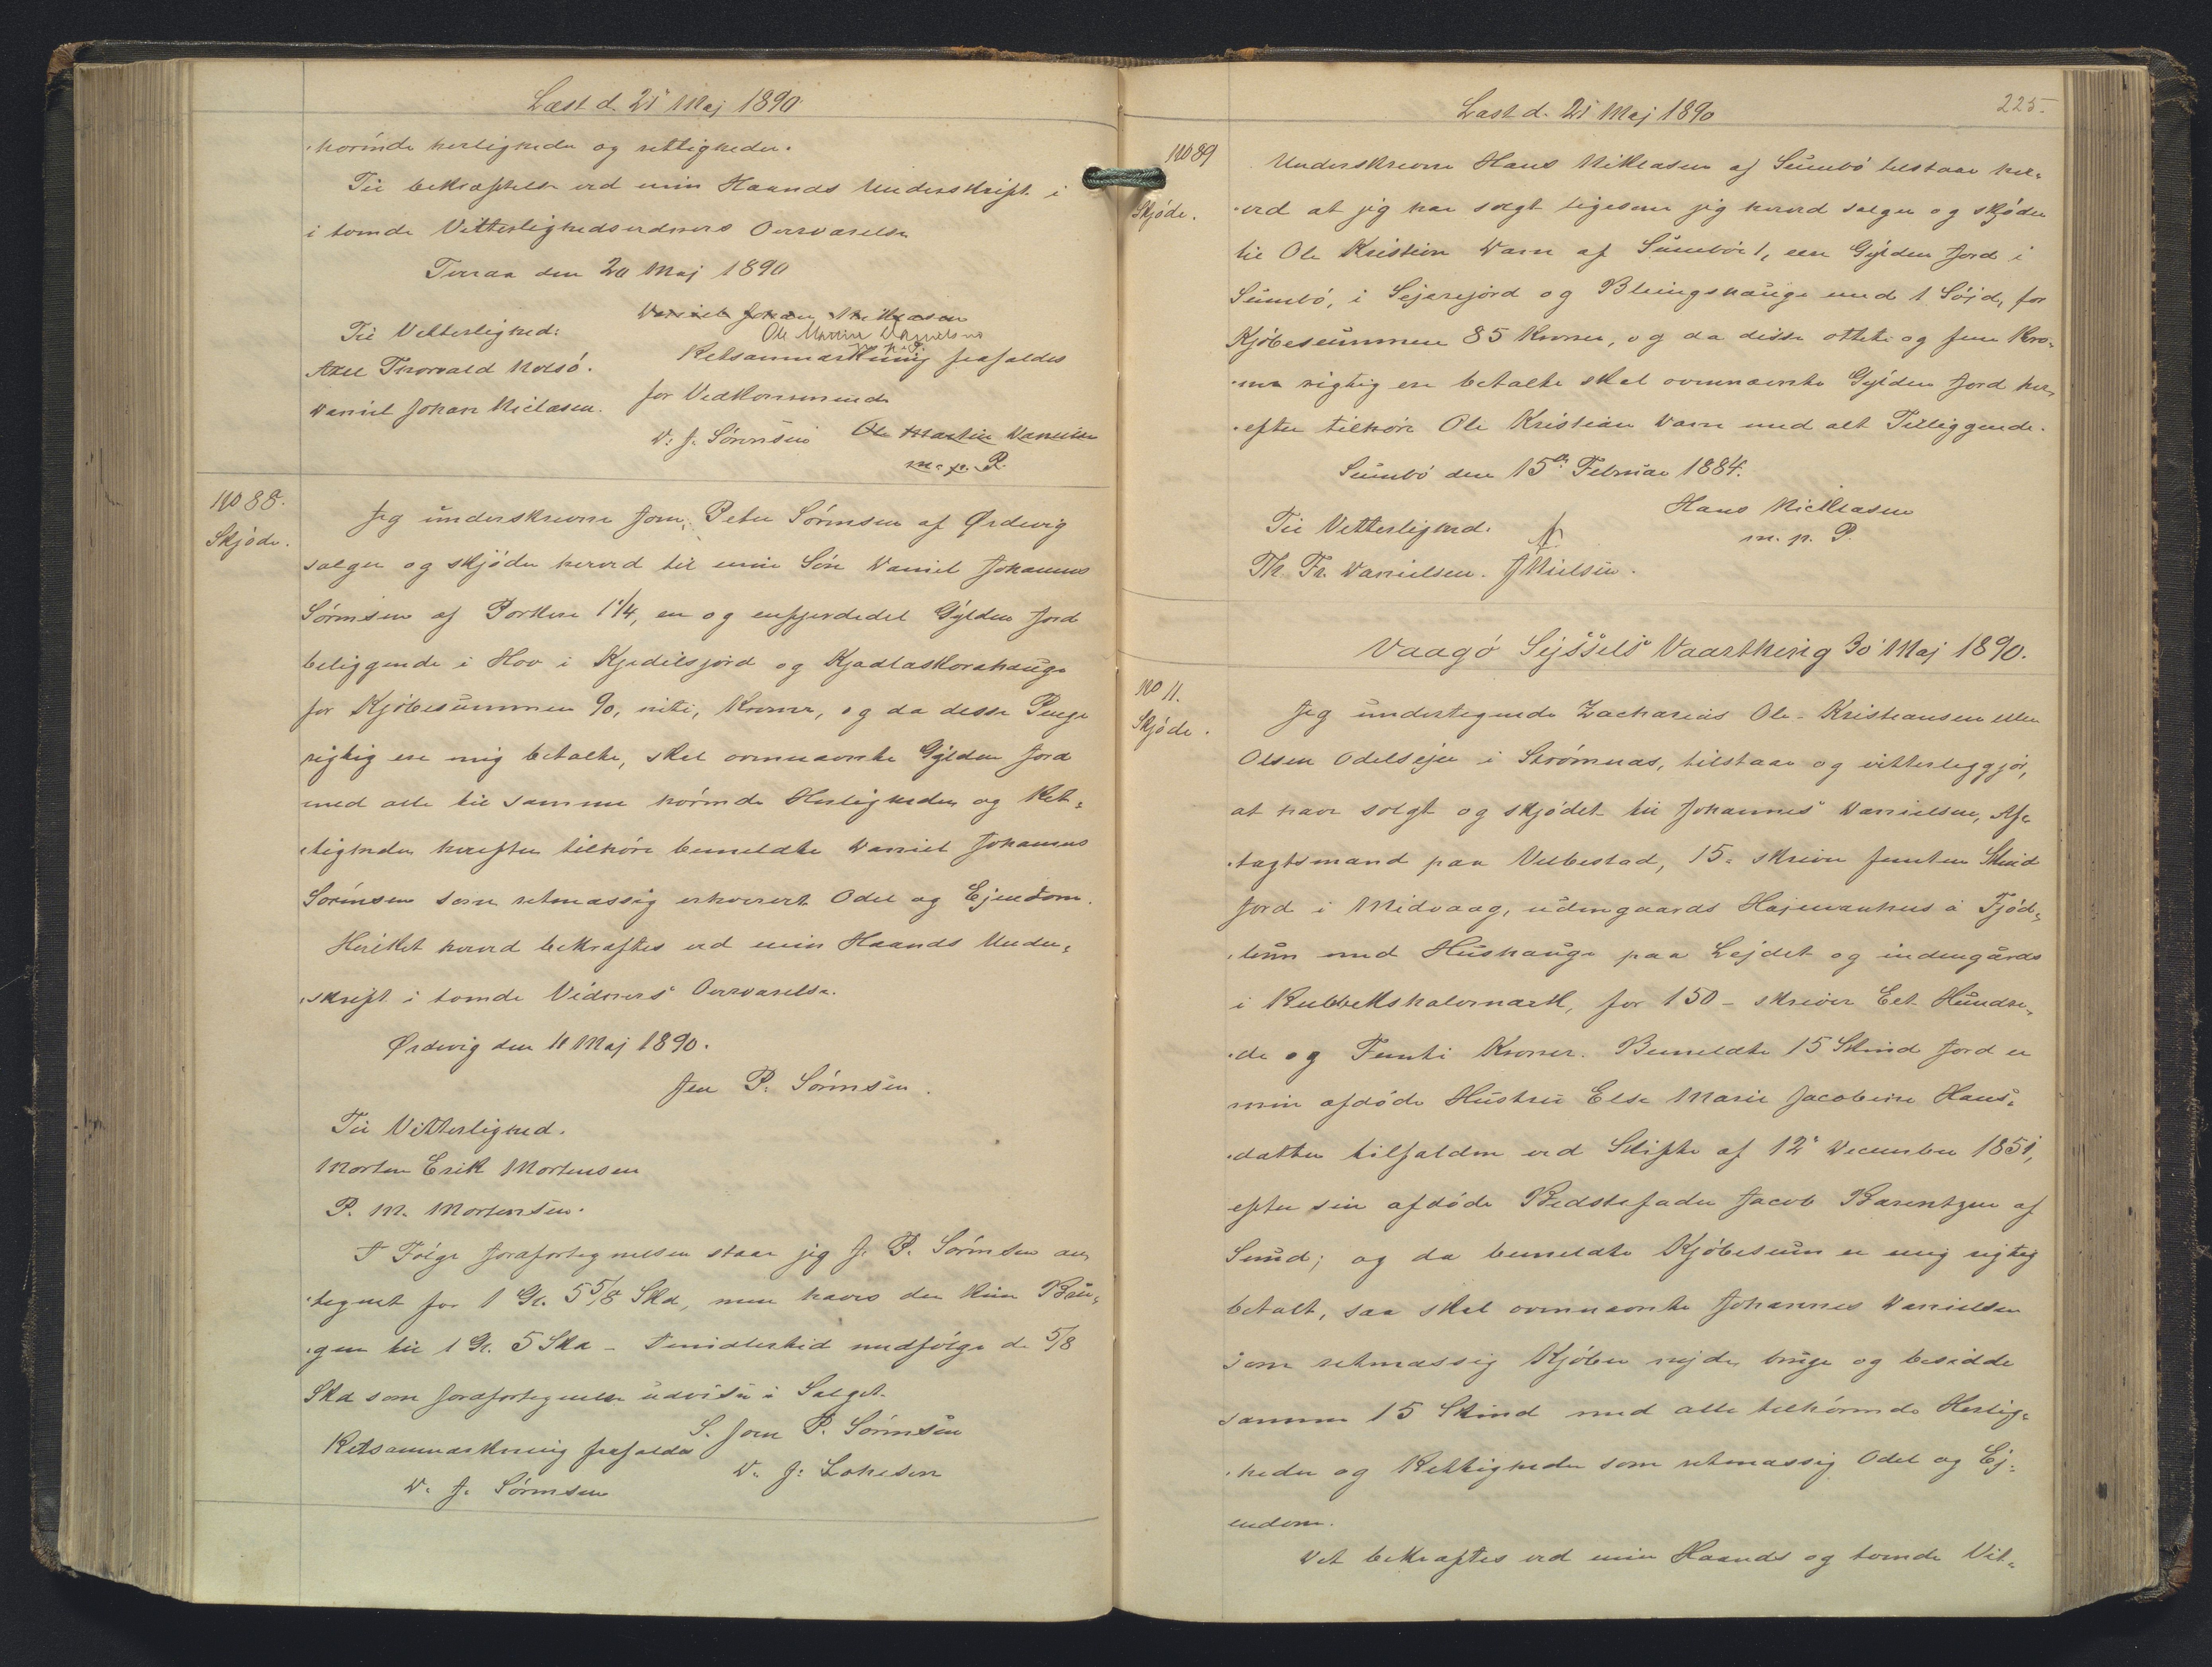 Læst d. 21 Maj 1890
hørende herligheder og rettigheder.
Til bekræftelse ved min Haands Underskrift i
i tvende Vitterlighedsvidners Overværelse
Tveraa den 20 Maj 1890
Daniel Johan Niklasen
Ole Martin Danielsen
m. p. P.
Til Vitterlighed:
Retsanmærkning frafaldes
Axel Thorvald Nolsø.
for Vedkommende
Daniel Johan Niclasen.
D. J. Sørensen Ole Martin Danielsen
m. p. P.
No 88.
Skjöde.
Jeg underskrevne Joen Peter Sørensen af Ørdevig
sælger og skjøder herved til min Søn Daniel Johannes
Sørensen af Porkere 1 1/4, en og enfjerdedel Gylden Jord
beliggende i Hov i Kjedilsjørd og Kjadlaskorahauge
for Kjøbesummen 90, niti, Kroner, og da desse Penge
rigtig ere mig betalte, skal ovennævnte Gylden Jord
med alle til samme hørende Herligheder og Ret-
tigheder herefter tilhøre bemeldte Daniel Johannes
Sørensen som retmæssig erhvervet Odel og Ejendom.
Hvilket herved bekræftes ved min Haands Under-
skrift i tvende Vidners Overværelse.
Ørdevig den 11 Maj 1890.
Joen P. Sørensen.
Til Vitterlighed.
Morten Erik Mortensen
P. M. Mortensen.
I Følge Jordfortegnelsen staar jeg J. P. Sørensen an-
tegnet for 1 Gl. 5 5/8 Skd, men haves der kun Bru-
gen til 1 Gl. 5 Skd - Imidlertid medfølge de 5/8
Skd som Jordfortegnelse udviser i Salget.
S. Joen P. Sørensen
Retsanmærkning frafaldes
D. J. Lokesen
D. J. Sørensen
Læst d. 21 Maj 1890
225.
No 89
Skjöde.
Underskrevne Hans Niklasen af Sumbø tilstaar her-
ved at jeg har solgt ligesom jeg herved sælger og skjøder
til Ole Kristian Dam af Sumbø 1, een Gylden Jord i
Sumbø, i Sejerejørd og Bleingshauge med 1 Søjd, for
Kjøbesummen 85 Kroner, og da disse otteti og fem Kro-
ner rigtig ere betalte skal ovennævnte Gylden Jord her-
efter tilhøre Ole Kristian Dam med alt Tilliggende.
Sumbø den 15de Februar 1884.
Hans Nicklasen
m. p. P.
Til Vitterlighed.
Th. Fr. Danielsen. J Nielsen.
Vaagø Syssels Vaarthing 30 Maj 1890.
No 11.
Skjøde.
Jeg undertegnede Zacharias Ole-Kristiansen eller
Olsen Odelsejer i Strømnæs, tilstaar og vitterliggjør,
at have solgt og skjødet til Johannes Danielsen, Af-
tagtsmand paa Velbestad, 15- skriver femten Skind
Jord i Midvaag, udengaards Hajevanhus a Tjød-
tunn med Hushauge paa Lejdet og indengårds
i Kubbekshalvmark, for 150 - skriver Eet Hundre-
de og Femti Kroner. Bemeldte 15 Skind Jord er
min afdøde Hustru Else Marie Jacobine Hans-
datter tilfalden ved Skifte af 12 December 1851,
efter sin afdøde Bedstefader Jacob Barentzen af
Sund; og da bemeldte Kjøbesum er mig rigtig
betalt, saa skal ovennævnte Johannes Danielsen
som retmæssig Kjøber nyde, bruge og besidde
samme 15 Skind med alle tilhørende Herlig-
heder og Rettigheder som retmæssig Odel og Ej-
endom.
Det bekræftes ved min Haands og tvende Vit-